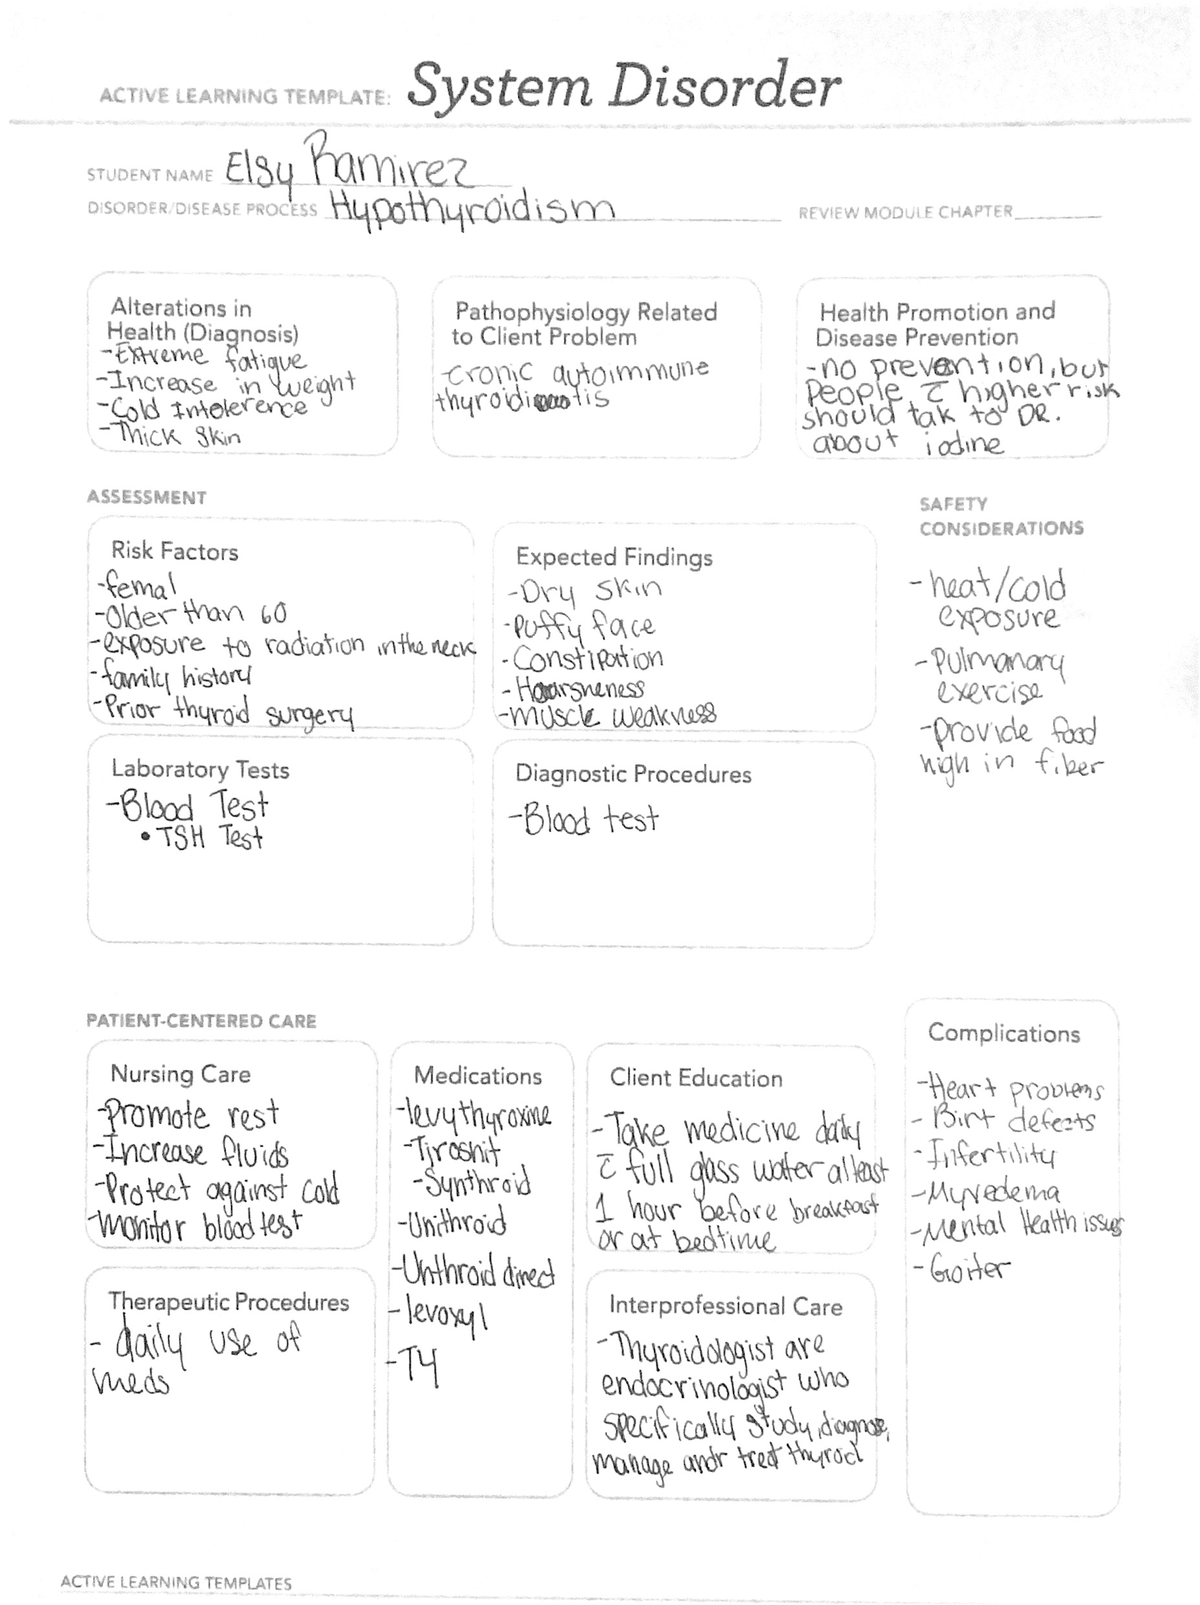 ACTIVE LEARNING TEMPLATE: System Disorder
STUDENT NAME Elsy Ramirez
DISORDER/DISEASE PROCESS Hypothyroidism
REVIEW MODULE CHAPTER
Alterations in
Health (Diagnosis)
-Extreme fatigue
-Increase in weight
-Cold Intolerence
-Thick Skin
Pathophysiology Related
to Client Problem
-cronic autoimmune
thyroiditis
Health Promotion and
Disease Prevention
-no prevention, but
People c̄ higher risk
should tak to DR.
about iodine
ASSESSMENT
Risk Factors
-femal
-Older than 60
-exposure to radiation in the neck
-family history
-Prior thyroid surgery
Expected Findings
-Dry Skin
-Puffy face
-Constipation
-Hoarsheness
-muscle weakness
SAFETY
CONSIDERATIONS
-heat/cold
exposure
-Pulmanary
exercise
-provide food
high in fiber
Laboratory Tests
-Blood Test
• TSH Test
Diagnostic Procedures
-Blood test
PATIENT-CENTERED CARE
Nursing Care
-Promote rest
-Increase fluids
-Protect against cold
-monitor blood test
Medications
-levythyroxine
-Tjroshit
-Synthroid
-Unithroid
-Unthroid direct
-levoxyl
-T4
Client Education
-Take medicine daily
c̄ full glass water at least
1 hour before breakfast
or at bedtime
Complications
-Heart problems
-Birt defects
-Infertility
-Myxedema
-Mental Health issues
-Goiter
Therapeutic Procedures
- daily use of
meds
Interprofessional Care
-Thyroidologist are
endocrinologist who
specifically study, diagnose,
manage and treat thyroid
ACTIVE LEARNING TEMPLATES